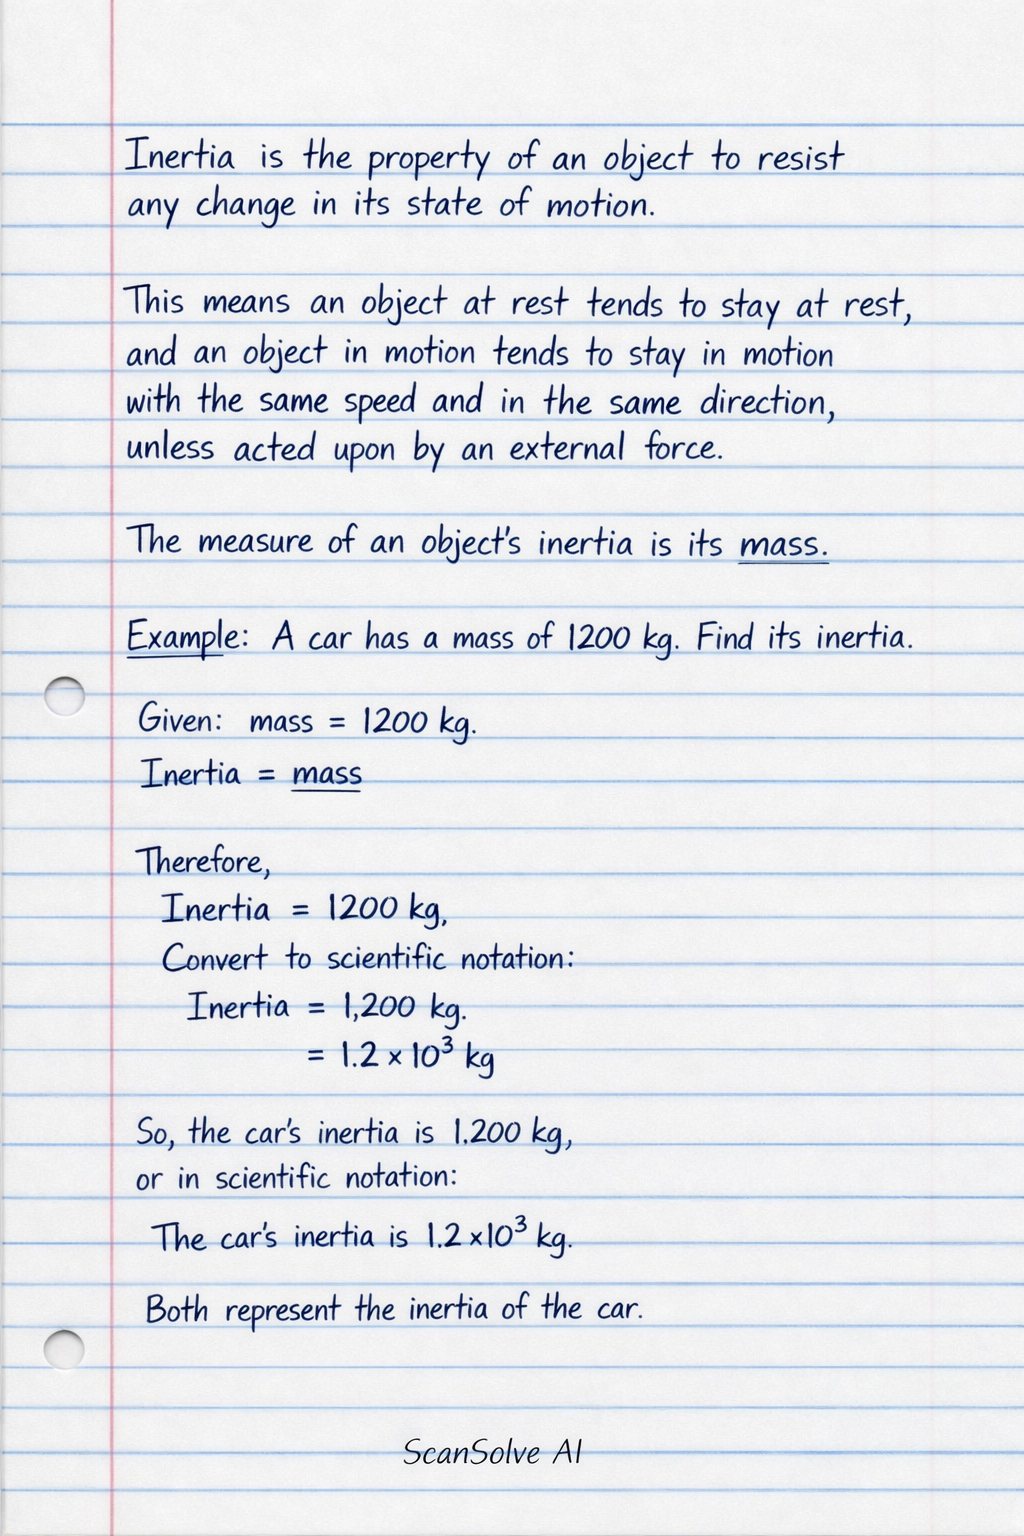 Inertia is the property of an object to resist
any change in its state of motion.
This means an object at rest tends to stay at rest,
and an object in motion tends to stay in motion
with the same speed and in the same direction,
unless acted upon by an external force.
The measure of an object's inertia is its mass.
Example: A car has a mass of 1200 kg. Find its inertia.
Given: mass = 1200 kg.
Inertia = mass
Therefore,
Inertia = 1200 kg,
Convert to scientific notation:
Inertia = 1,200 kg.
= 1.2 × 10³ kg
So, the car's inertia is 1.200 kg,
or in scientific notation:
The car's inertia is 1.2 ×10³ kg.
Both represent the inertia of the car.
ScanSolve AI